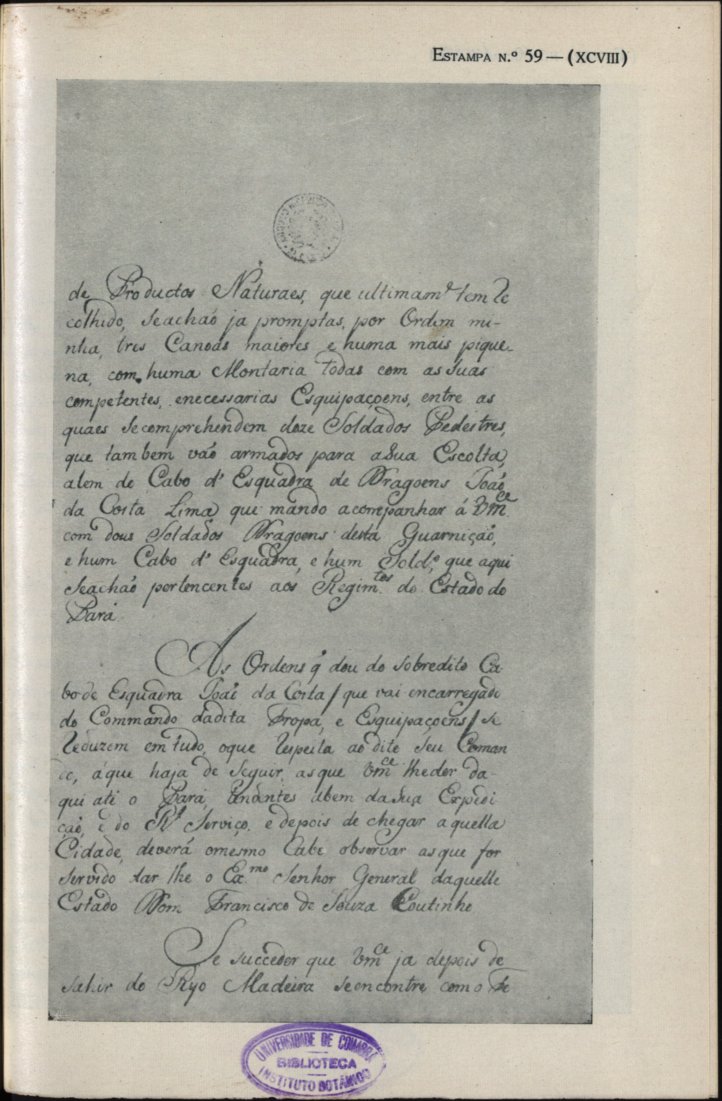 ESTAMPA N.º 59 — (XCVIII)
de Productos Naturaes, que ultimam.te tem Re
colhido, Seachaõ ja promptas, por Ordem mi-
nha, tres Canoas maiores, e huma mais pique-
na, com huma Montaria todas com as suas
competentes, enecessarias Esquipaçoens, entre as
quaes Secomprehendem doze Soldados Pedestres,
que tambem vaõ armados para aSua Escolta,
alem de Cabo d' Esquadra de Dragoens Joaõ
da Costa Lima que mando acompanhar á Vm.ce
com dous Soldados Dragoens desta Guarniçaõ,
e hum Cabo d' Esquadra, e hum Sold.o que aqui
Seachaõ pertencentes aos Regim.tos do Estado do
Pará.
As Ordens q̃ dou do Sobredito Ca-
bo de Esquadra Joaõ da Costa / que vai encarregado
do Commando dadita Tropa, e Esquipaçoens / Se
Reduzem emtudo, oque Respeita ao dito Seu Coman
do, áque haja de Seguir, asque Vm.ce lheder da-
qui até o Pará, tendentes abem daSua Expedi
çaõ, e do R.l Serviço, e depois de chegar aquella
Cidade, deverá omesmo Cabo observar asque for
Servido dar lhe o Ex.mo Senhor General daquelle
Estado Dom Francisco de Souza Coutinho
Se succeder que Vm.ce ja depois de
Sahir do Ryo Madeira Seencontre como
UNIVERSIDADE DE COIMBRA
BIBLIOTECA
INSTITUTO BOTÂNICO